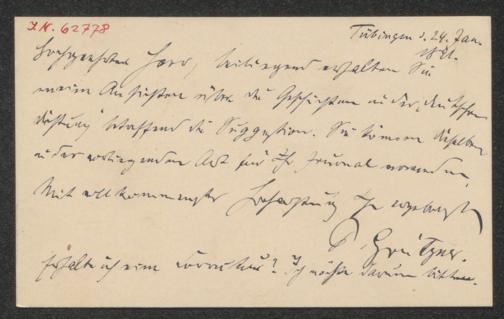 I.N. 62778
Tübingen d. 24. Jan.
Hochgeehrter Herr, beiliegend erhalten Sie
meine Ansichten über die Geschichten in der "Deutschen
Dichtung" betreffend die Suggestion. Sie können dieselben
in der vorliegenden Art für Ihr Journal verwenden.
Mit vollkommenster Hochachtung Ihr ergebenster
P. Grützner.
Erhalte ich eine Correctur? Ich möchte darum bitten.